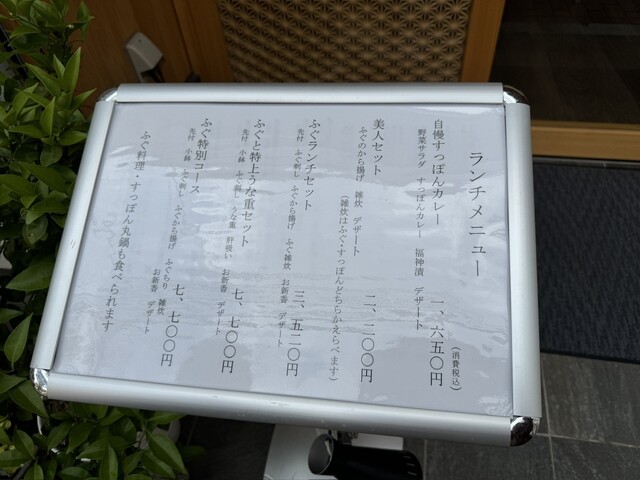 ランチメニュー
(消費税込)
自慢すっぽんカレー 一、六五〇円
野菜サラダ すっぽんカレー 福神漬 デザート
美人セット 二、二〇〇円
ふぐのから揚げ 雑炊 デザート
(雑炊はふぐ・すっぽんどちらかえらべます)
ふぐランチセット 三、五二〇円
先付 ふぐ刺し ふぐから揚げ ふぐ雑炊 お新香 デザート
ふぐと特上うな重セット 七、七〇〇円
先付 小鉢 ふぐ刺し うな重 肝吸い お新香 デザート
ふぐ特別コース 七、七〇〇円
先付 小鉢 ふぐ刺し ふぐから揚げ ふぐちり 雑炊 お新香 デザート
ふぐ料理・すっぽん丸鍋も食べられます